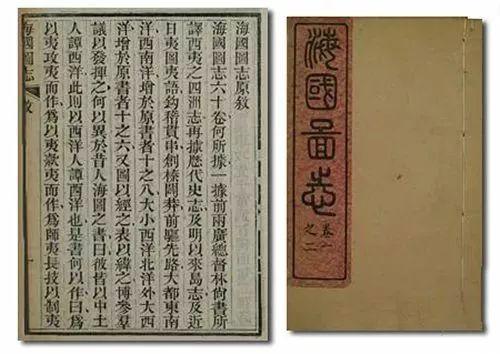 海國圖志原敘
海國圖志六十卷何所據一據前兩廣總督林尚書所
譯西夷之四洲志再據歷代史志及明以來島志及近
日夷圖夷語鉤稽貫串創榛闢莽前驅先路大都東南
洋西南洋增於原書者十之八大小西洋北洋外大西
洋增於原書者十之六又圖以經之表以緯之博參羣
議以發揮之何以異於昔人海圖之書曰彼皆以中土
人譚西洋此則以西洋人譚西洋也是書何以作曰爲
以夷攻夷而作爲以夷款夷而作爲師夷長技以制夷
海國圖志 敘
海國圖志
卷一
之二